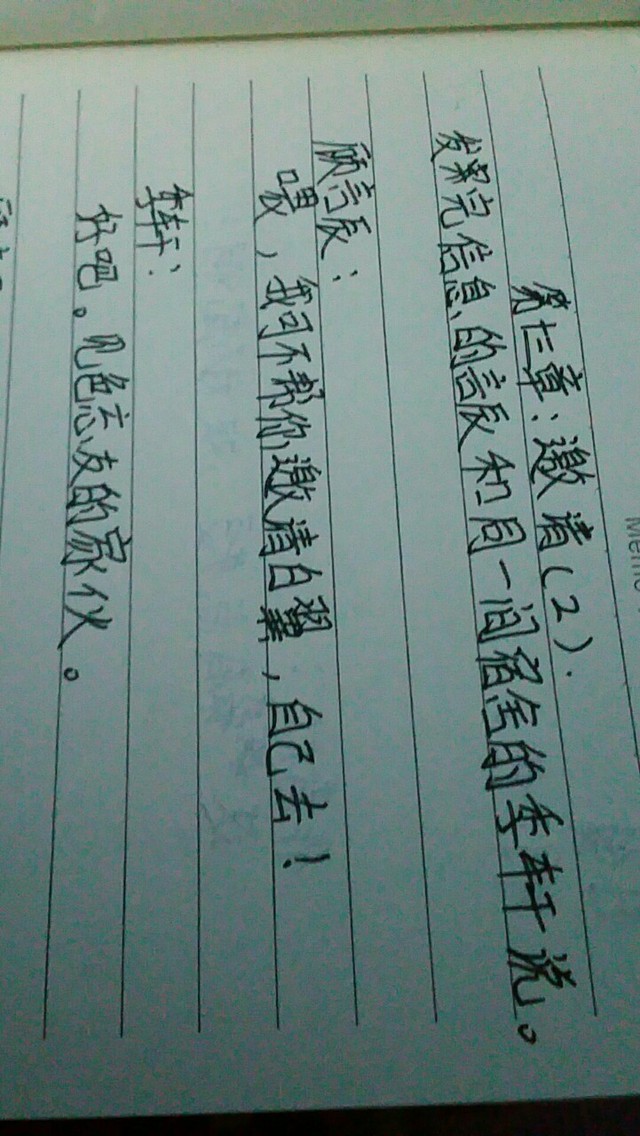 第七章:邀请(2).
发完信息的言辰和同一间宿舍的季轩说。
顾言辰:
喂,我可不帮你邀请白翼,自己去!
季轩:
好吧。见色忘友的家伙。